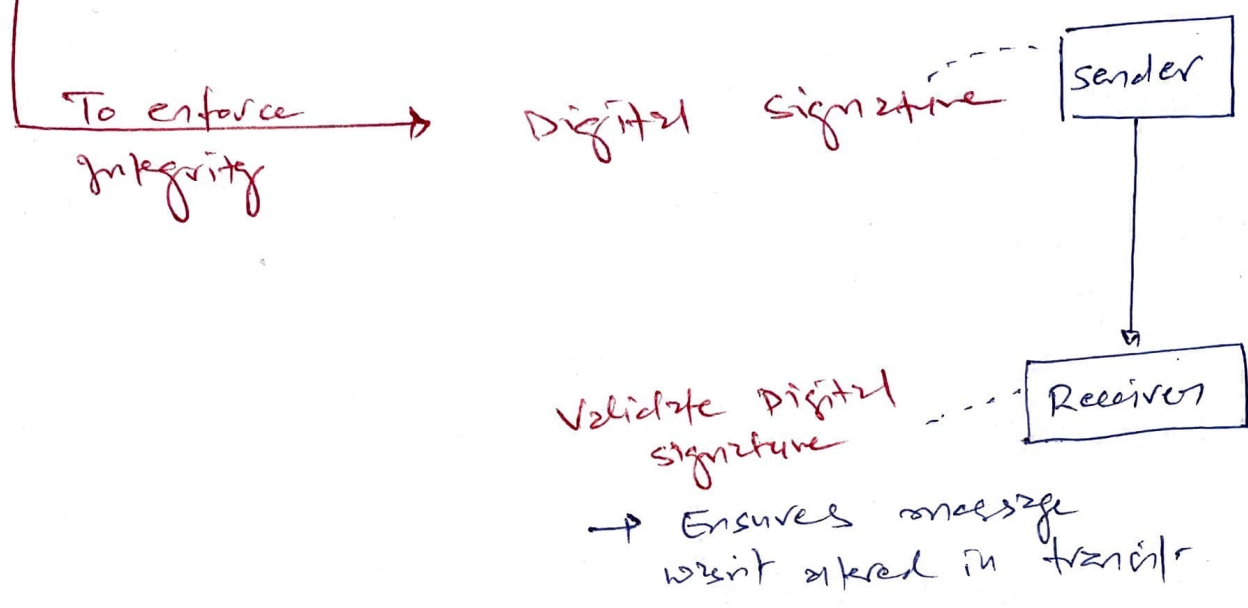 sender
To enforce
Integrity
Digital signature
Receiver
Validate Digital
signature
→ Ensures message
wasn't altered in transit.